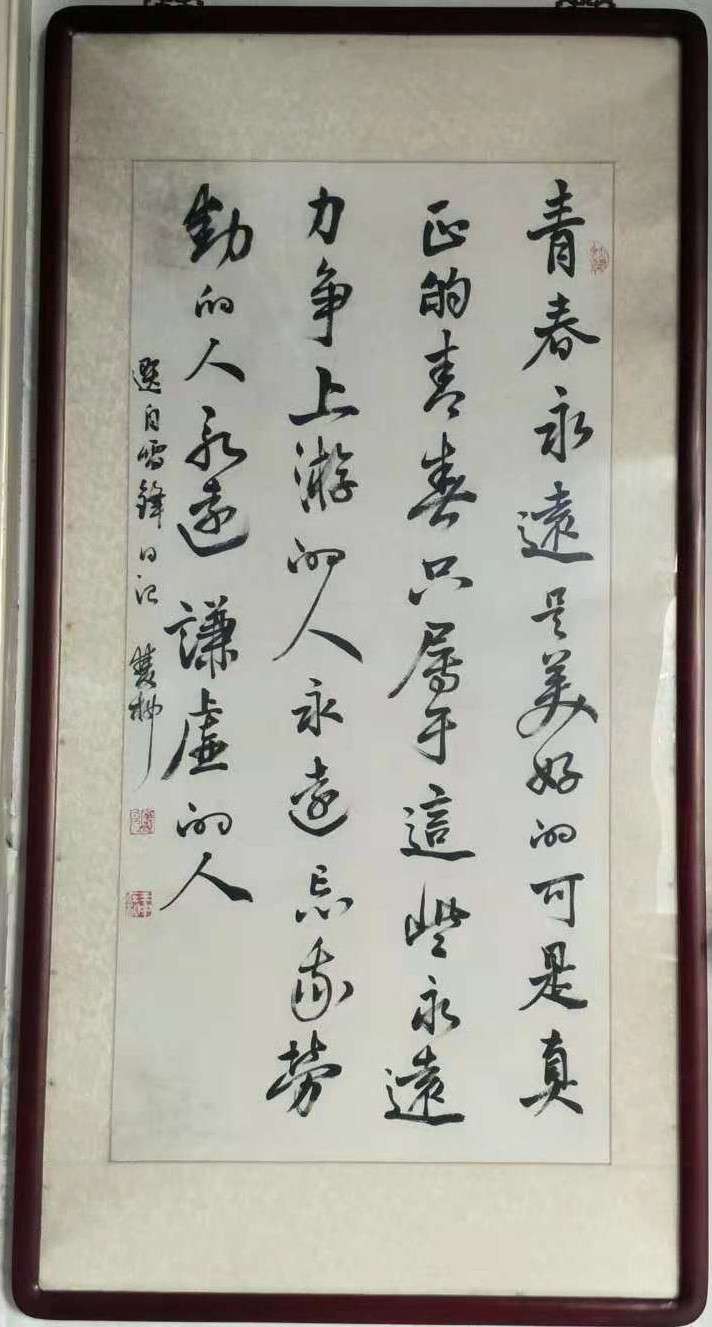 青春永遠是美好的可是真
正的青春只属于這些永遠
力争上游的人永遠忘我劳
動的人永遠謙虚的人
选自雷鋒日记